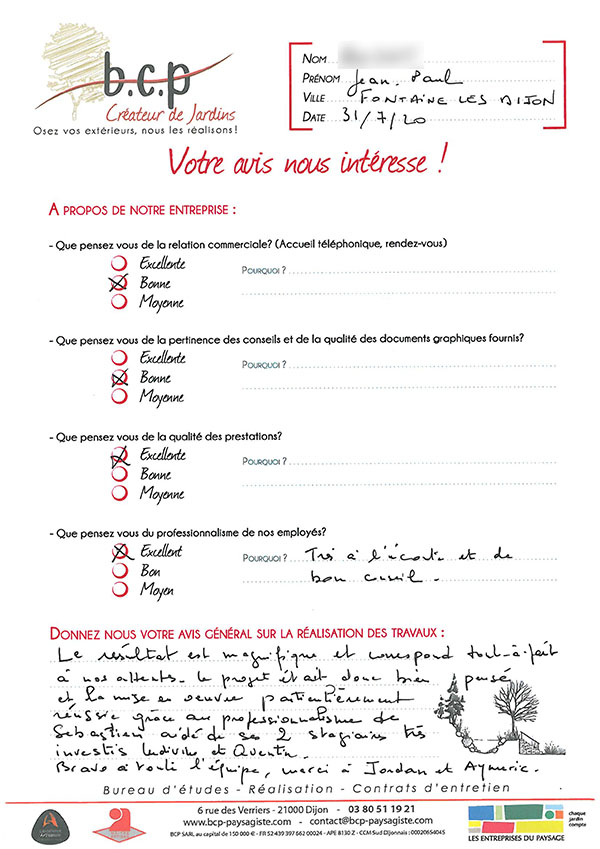 b.c.p
Créateur de Jardins
Osez vos extérieurs, nous les réalisons !
NOM
PRÉNOM Jean. Paul
VILLE FONTAINE LES DIJON
DATE 31/7/20
Votre avis nous intéresse !
A PROPOS DE NOTRE ENTREPRISE :
- Que pensez vous de la relation commerciale? (Accueil téléphonique, rendez-vous)
Excellente
POURQUOI ?
Bonne
Moyenne
- Que pensez vous de la pertinence des conseils et de la qualité des documents graphiques fournis?
Excellente
POURQUOI ?
Bonne
Moyenne
- Que pensez vous de la qualité des prestations?
Excellente
POURQUOI ?
Bonne
Moyenne
- Que pensez vous du professionnalisme de nos employés?
Excellent
POURQUOI ? Très à l'écoute et de
bon conseil.
Bon
Moyen
DONNEZ NOUS VOTRE AVIS GÉNÉRAL SUR LA RÉALISATION DES TRAVAUX :
Le résultat est magnifique et correspond tout-à-fait
à nos attentes. Le projet était donc bien pensé
et la mise en oeuvre particulièrement
réussie grâce au professionnalisme de
Sebastien aidé de ses 2 stagiaires très
investis Ludivine et Quentin.
Bravo à toute l'équipe, merci à Jordan et Aymeric.
Bureau d'études - Réalisation - Contrats d'entretien
6 rue des Verriers - 21000 Dijon - 03 80 51 19 21
www.bcp-paysagiste.com - contact@bcp-paysagiste.com
BCP SARL au capital de 150 000 € - FR 52 439 397 662 00024 - APE 8130 Z - CCM Sud Dijonnais : 00020654045
LES ENTREPRISES DU PAYSAGE
chaque
jardin
compte